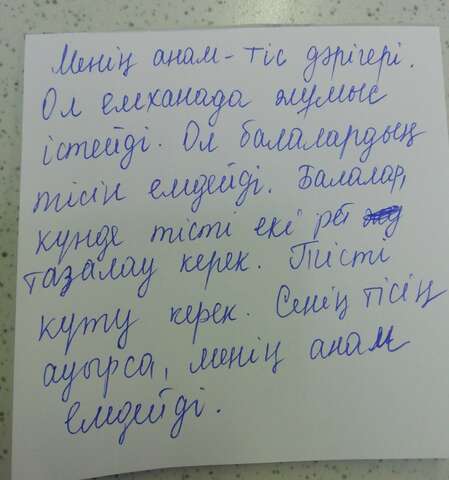 Менің анам - тіс дәрігері.
Ол емханада жұмыс
істейді. Ол балалардың
тісін емдейді. Балалар,
күнде тісті екі рет
тазалау керек. Тісті
күту керек. Сенің тісің
ауырса, менің анам
емдейді.